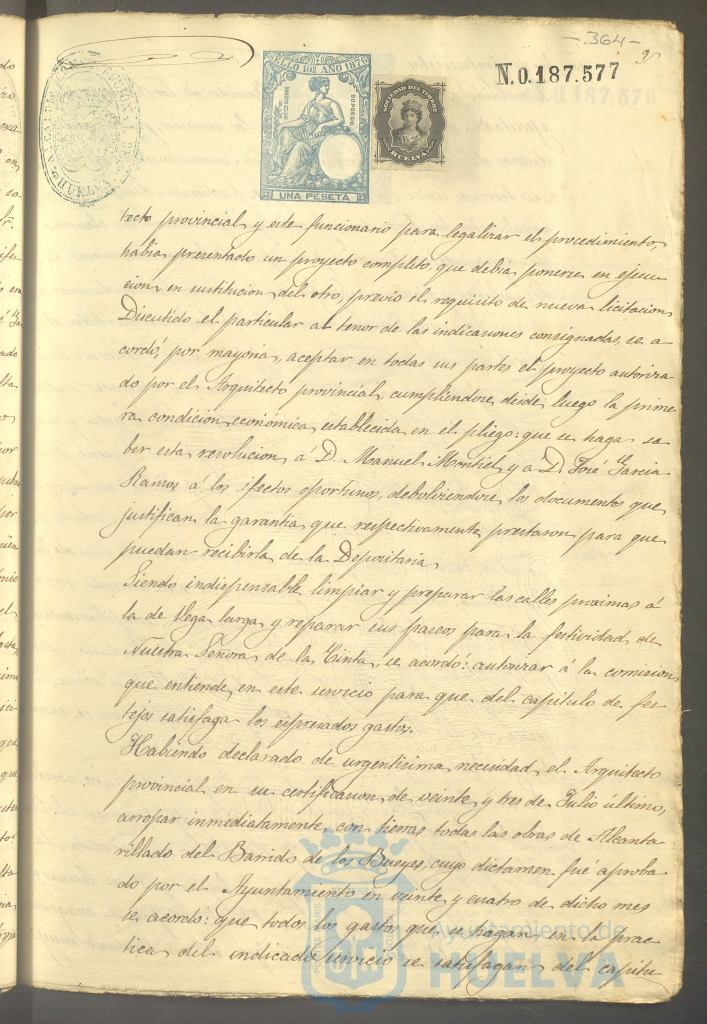 -364-
N.0.187.577
SELLO 10º AÑO 1876
UNA PESETA
SOCIEDAD DEL TIMBRE
HUELVA
HUELVA
tecto provincial y este funcionario para legalizar el procedimiento,
habia presentado un proyecto completo, que debia ponerse en ejecu
cion, en sustitucion del otro, previo el requisito de nueva licitacion
Discutido el particular a tenor de las indicaciones consignadas, se a
cordó, por mayoria, aceptar en todas sus partes el proyecto autoriza
do por el Arquitecto provincial, cumpliendose desde luego la prime
ra condicion económica, establecida en el pliego: que se haga sa
ber esta resolucion á D. Manuel Montiel y a D. José Garcia
Ramos á los efectos oportunos, debolviendose los documentos que
justifican la garantia que respectivamente prestaron para que
puedan recibirla de la Depositaria.
Siendo indispensable limpiar y preparar las calles proximas á
la de Vega larga y reparar sus paseos para la festividad de
Nuestra Señora de la Cinta, se acordó: autorizar á la comision
que entiende en este servicio para que del capitulo de fes
tejos satisfaga los espresados gastos.
Habiendo declarado de urgentisima necesidad, el Arquitecto
provincial en su certificacion de veinte y tres de Julio último,
arropar inmediatamente con tierras todas las obras de Alcanta
rillado del Barrido de los Bueyes, cuyo dictamen fué aproba
do por el Ayuntamiento en veinte y cuatro de dicho mes
se acordó: que todos los gastos que se hagan en la prac
tica del indicado servicio se satisfagan del capitu
Ayuntamiento de
HUELVA